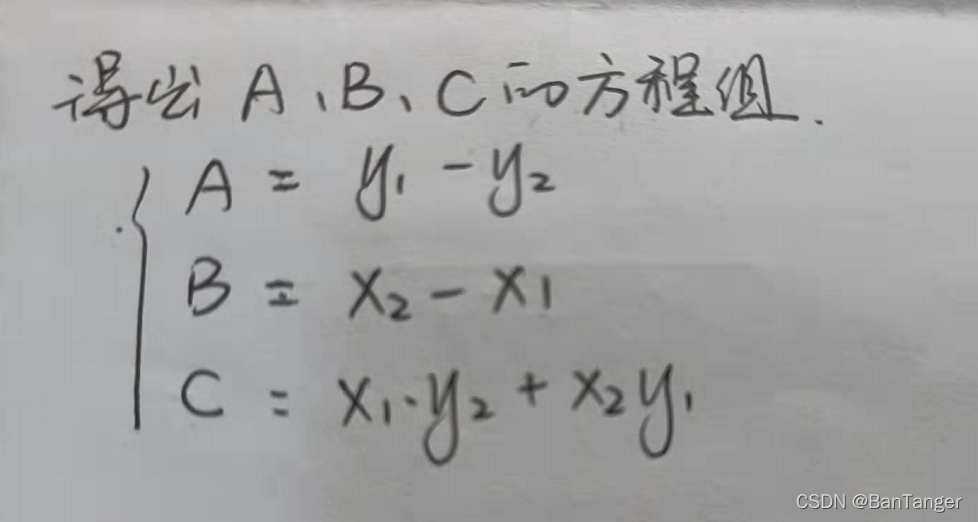 得出 A、B、C 的方程组.
A = y₁ - y₂
B = x₂ - x₁
C = x₁·y₂ + x₂y₁
CSDN @BanTanger